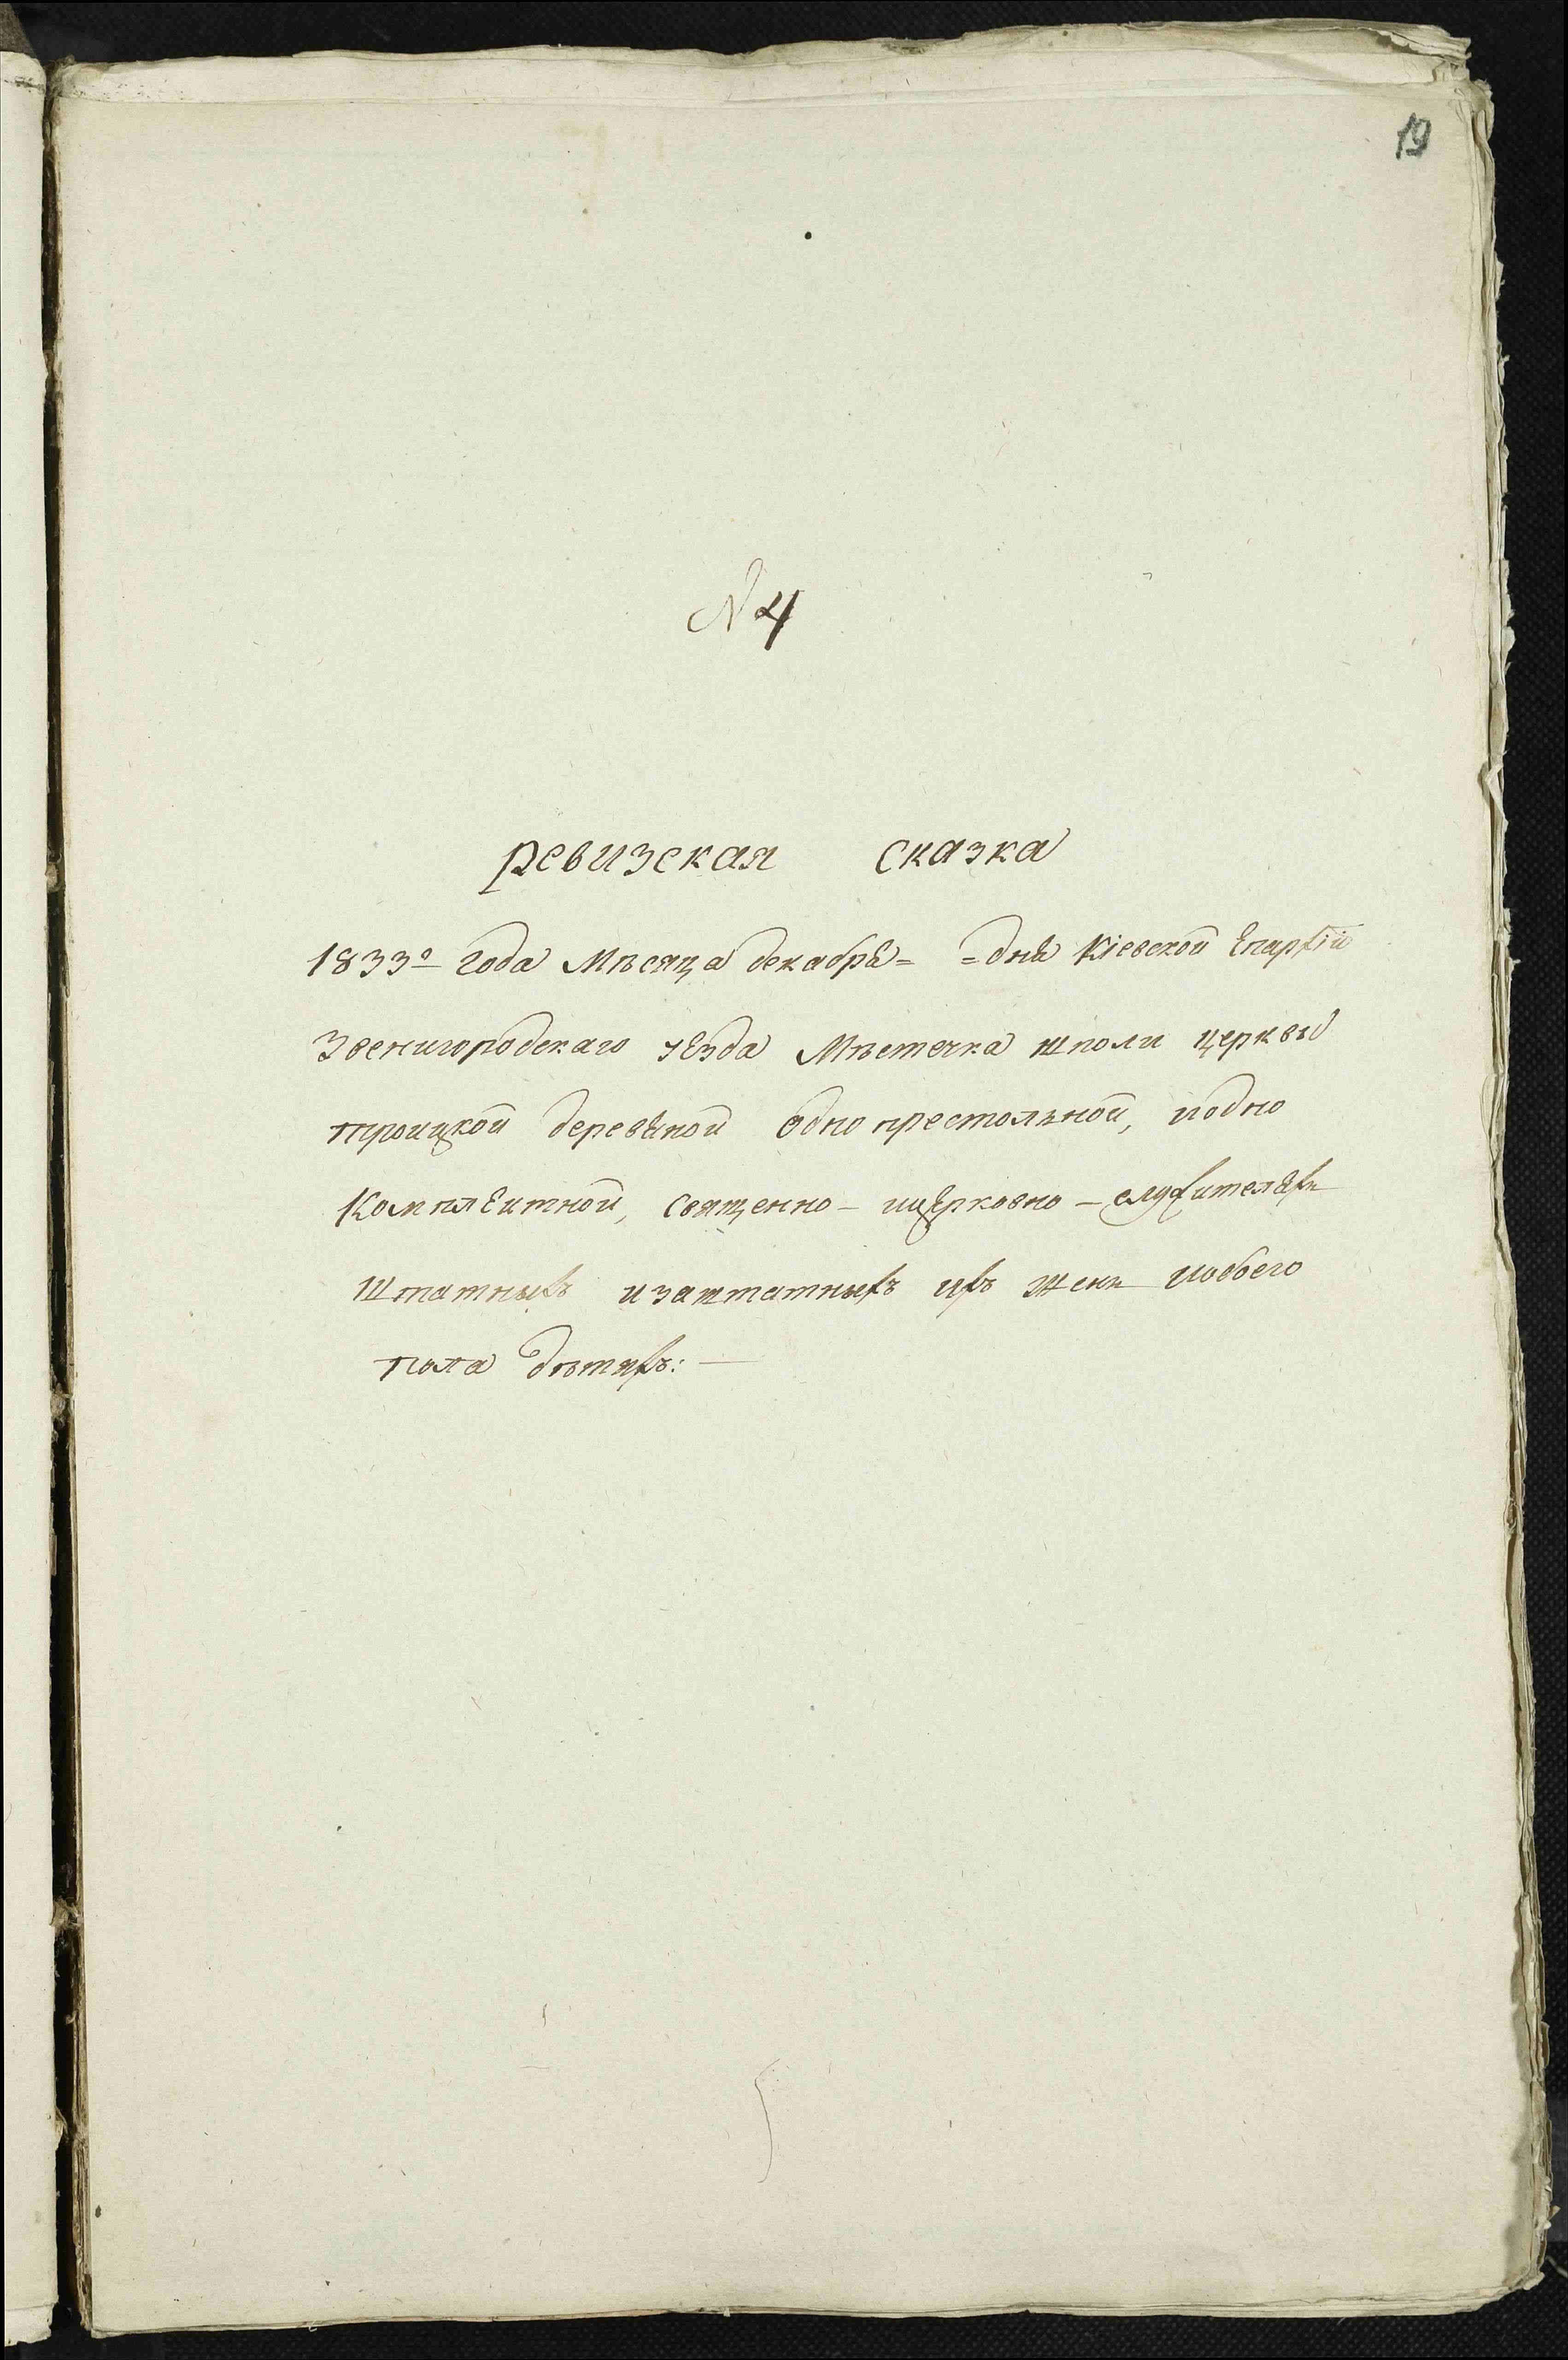 19
№ 4
ревизская сказка
1833º года Мѣсяца декабря= =дня Кіевской Епархіи
Звенигородскаго уезда Мѣстечка шполи церквы
троицкой деревяной однопрестольной, иодно
Комплектной, священно – ицерковно – служителяхъ
штатныхъ изаштатныхъ ихъ женъ иобоего
пола дѣтяхъ: —